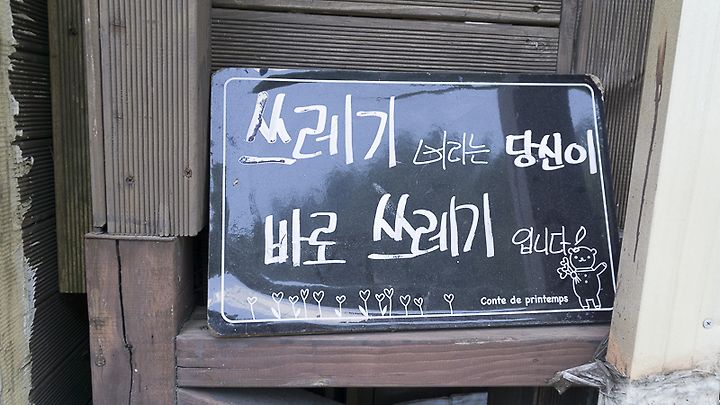 쓰레기 버리는 당신이
바로 쓰레기 입니다!
Conte de printemps